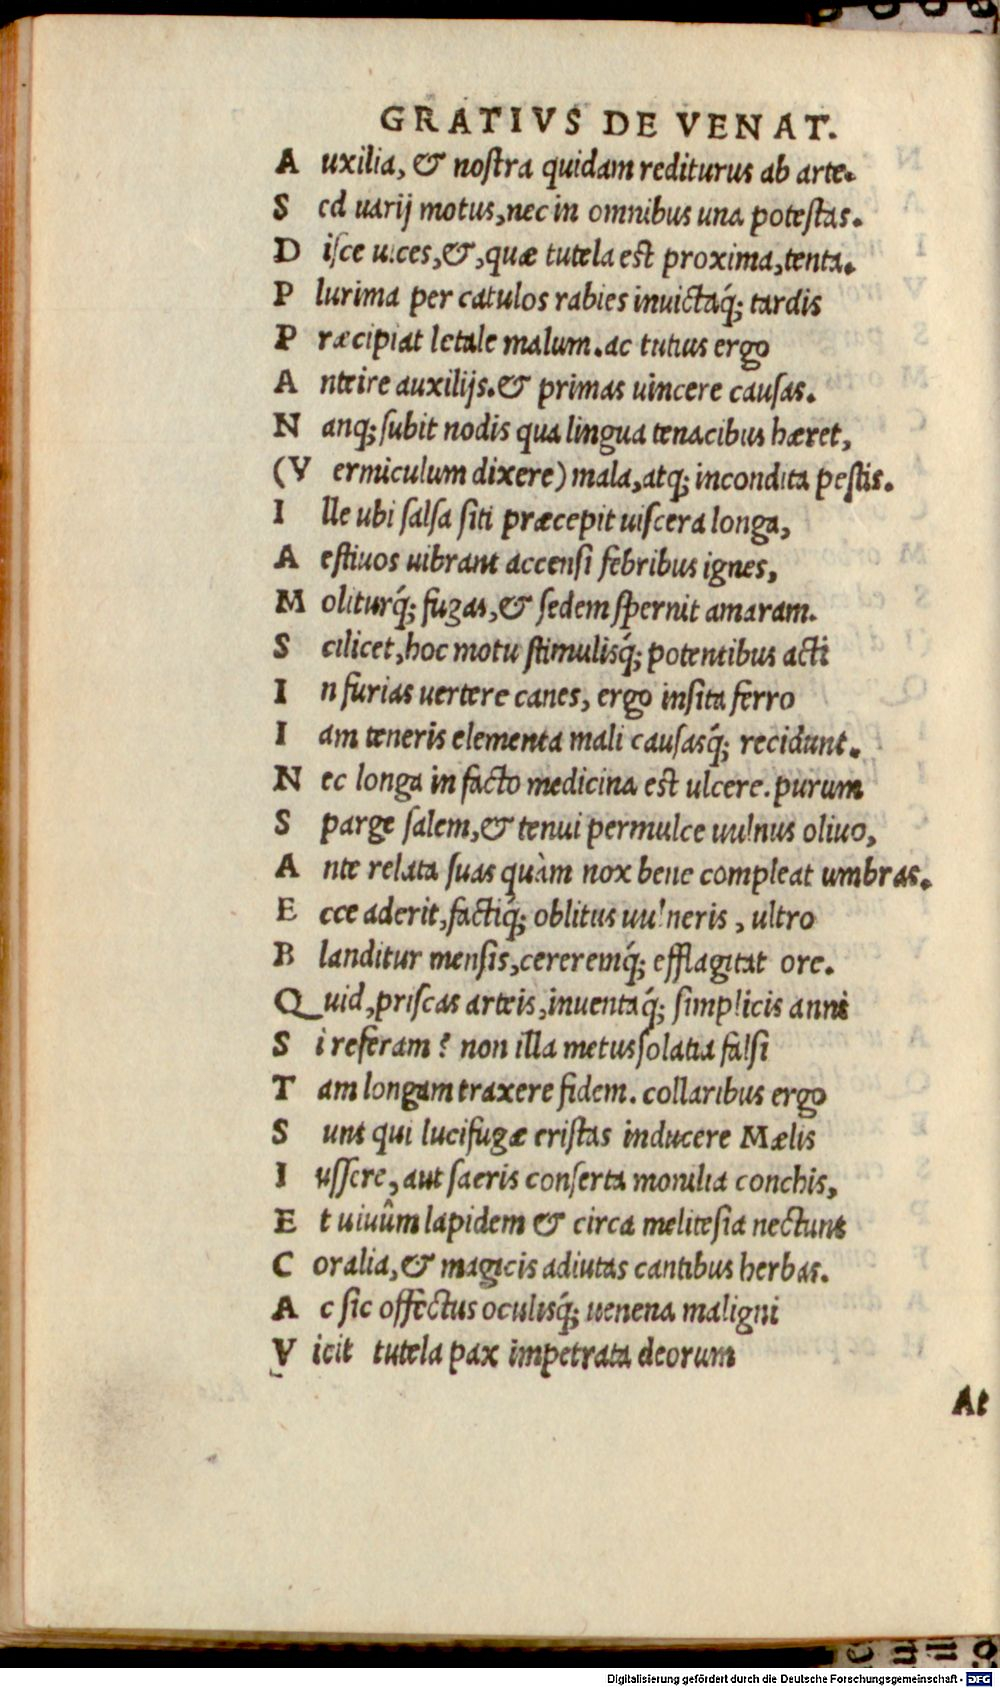 GRATIVS DE VENAT.
Auxilia, & nostra quidam rediturus ab arte.
Sed uarij motus, nec in omnibus una potestas.
Disce uices, &, quæ tutela est proxima, tenta.
Plurima per catulos rabies inuictaq́; tardis
Præcipiat letale malum. ac tutius ergo
Anteire auxilijs. & primas uincere causas.
Nanq; subit nodis qua lingua tenacibus hæret,
(Vermiculum dixere) mala, atq; incondita pestis.
Ille ubi salsa siti præcepit uiscera longa,
Aestiuos uibrant accensi febribus ignes,
Moliturq́; fugas, & sedem spernit amaram.
Scilicet, hoc motu stimulisq́; potentibus acti
In furias uertere canes, ergo insita ferro
Iam teneris elementa mali causasq́; recidunt.
Nec longa in facto medicina est ulcere. purum
Sparge salem, & tenui permulce uulnus oliuo,
Ante relata suas quàm nox bene compleat umbras.
Ecce aderit, factiq́; oblitus uulneris, ultro
Blanditur mensis, cereremq́; efflagitat ore.
Quid, priscas arteis, inuentaq́; simplicis anni
Si referam? non illa metus solatia falsi
Tam longam traxere fidem. collaribus ergo
Sunt qui lucifugæ cristas inducere Mælis
Iussere, aut sacris conserta monilia conchis,
Et uiuûm lapidem & circa melitesia nectunt
Coralia, & magicis adiutas cantibus herbas.
Ac sic offectus oculisq́; uenena maligni
Vicit tutela pax impetrata deorum
At
Digitalisierung gefördert durch die Deutsche Forschungsgemeinschaft - DFG